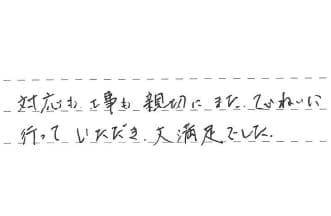 対応も工事も親切に また、ていねいに
行っていただき、大満足でした。